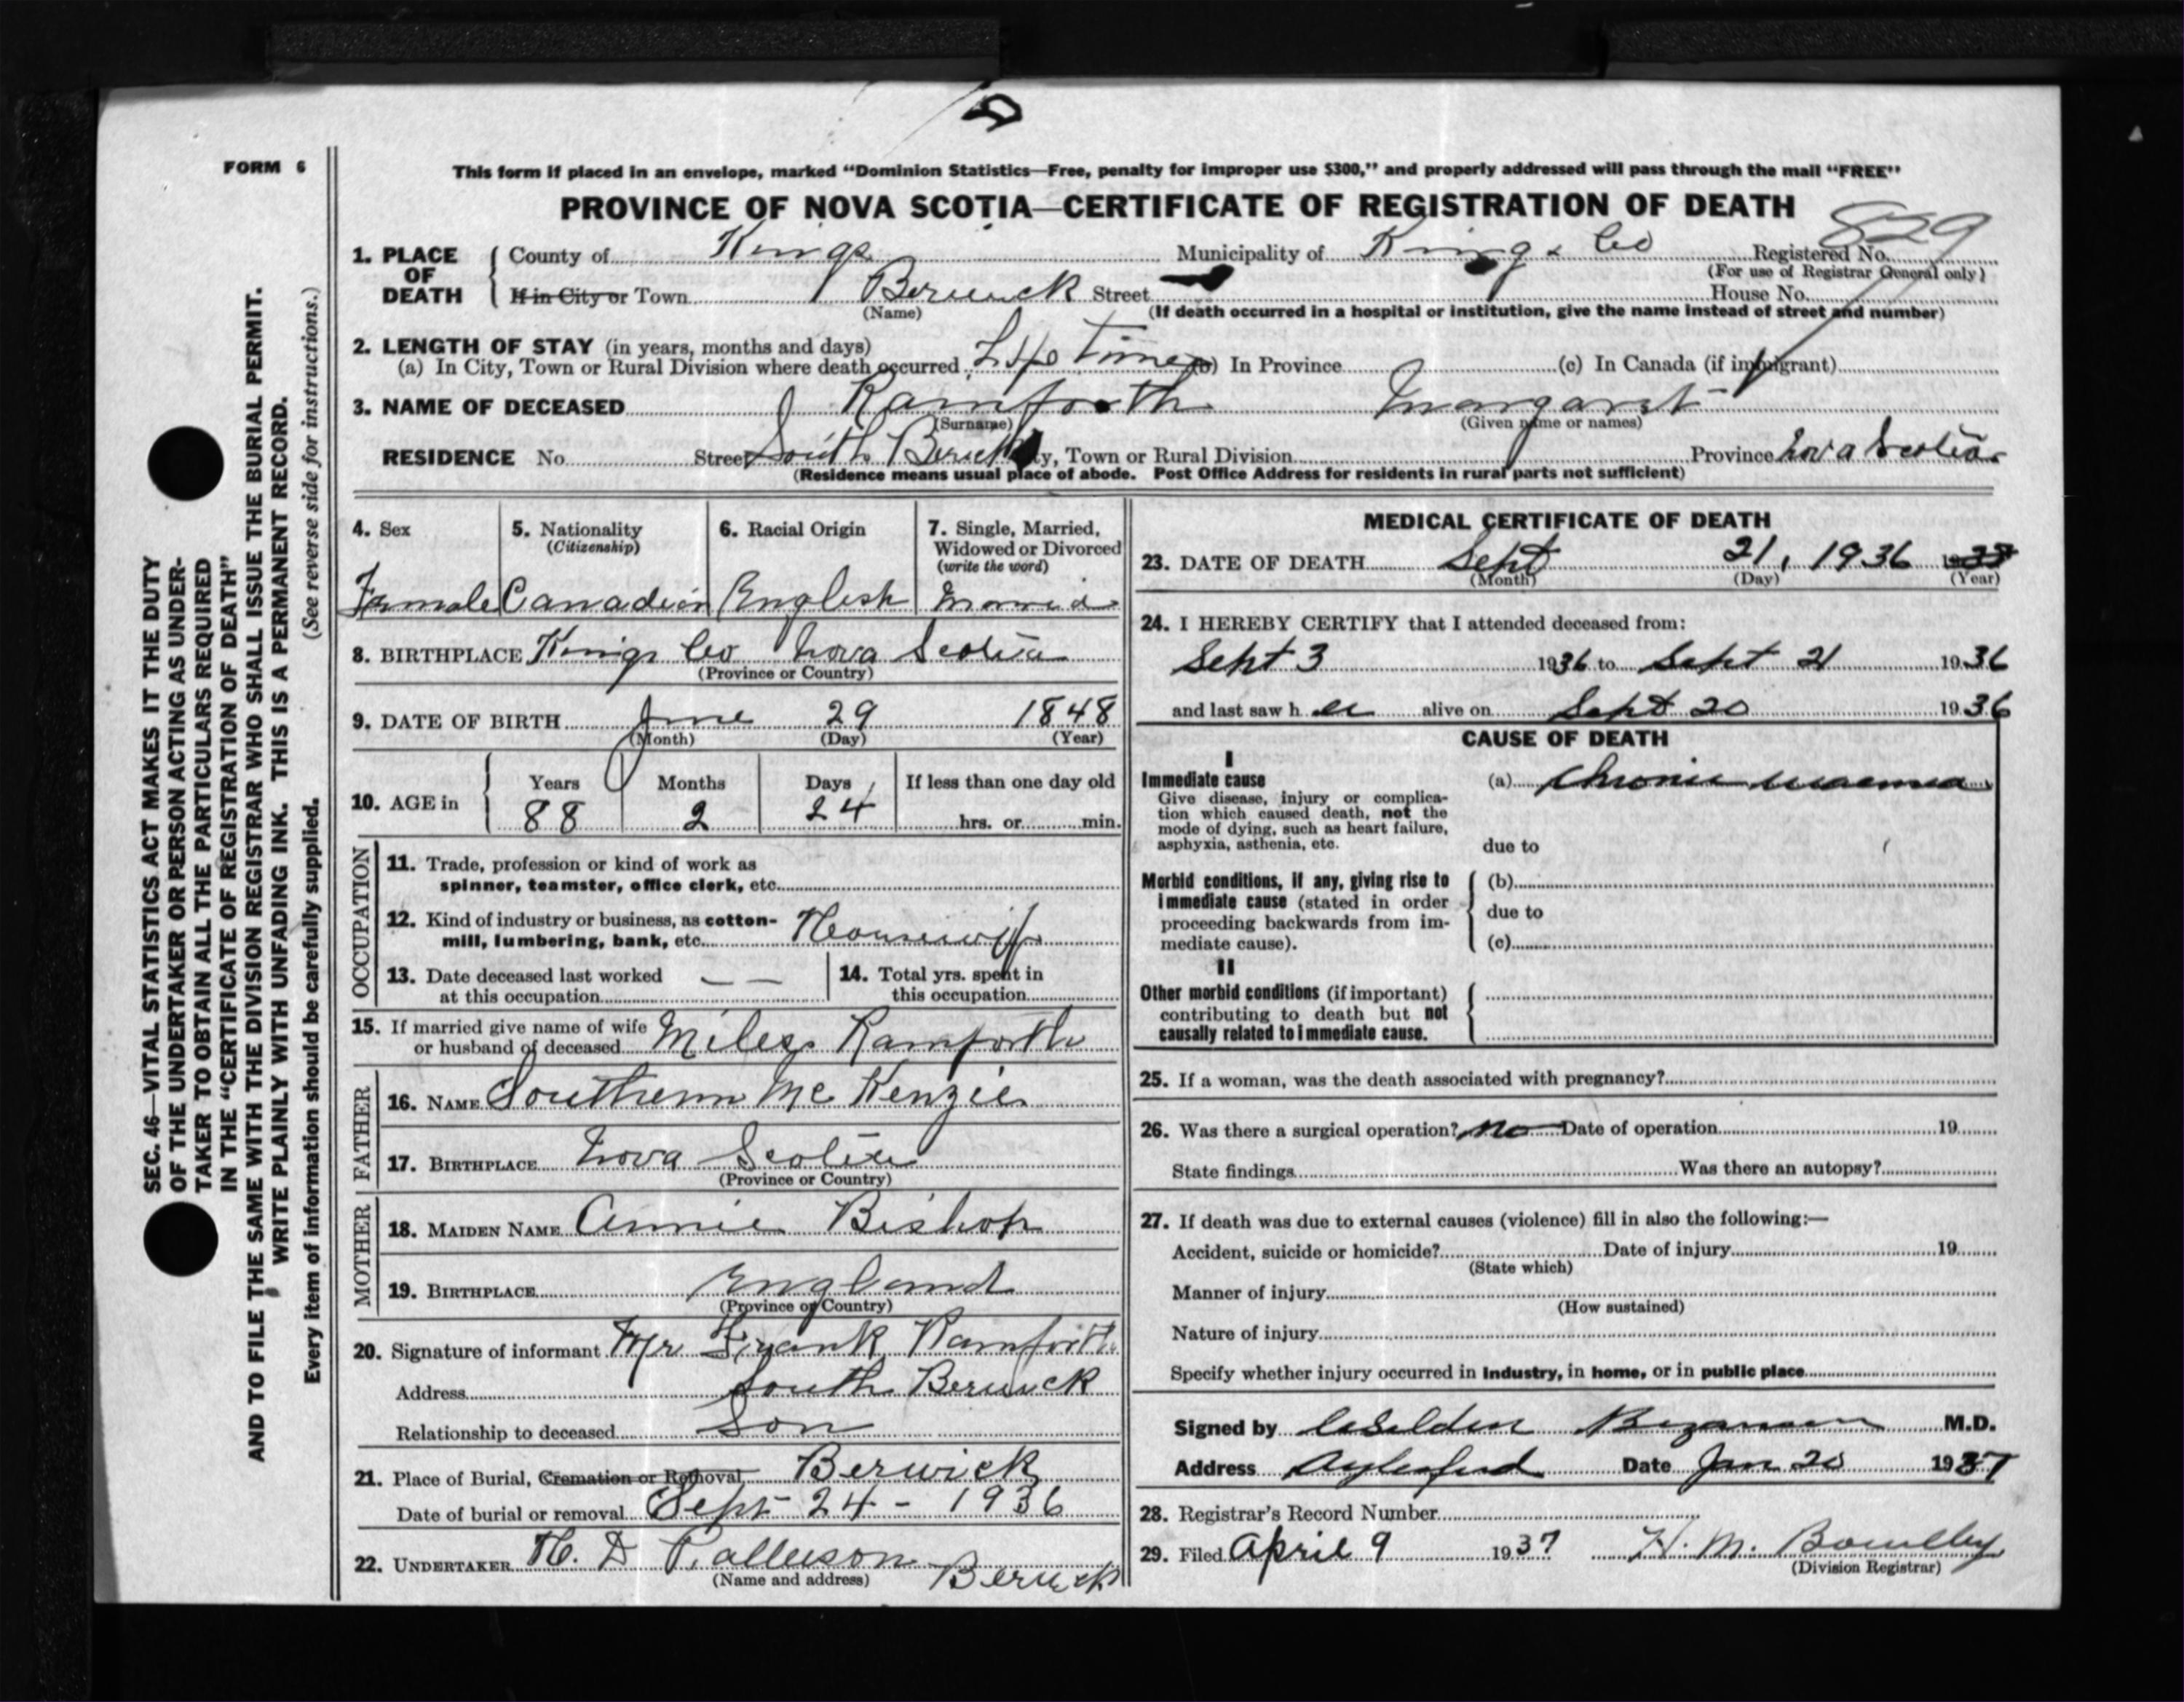 FORM 6
This form if placed in an envelope, marked “Dominion Statistics—Free, penalty for improper use $300,” and properly addressed will pass through the mail “FREE”
PROVINCE OF NOVA SCOTIA—CERTIFICATE OF REGISTRATION OF DEATH
829
1. PLACE OF DEATH { County of Kings Municipality of Kings Co Registered No.
(For use of Registrar General only)
If in City or Town Berwick Street House No.
(Name) (If death occurred in a hospital or institution, give the name instead of street and number)
2. LENGTH OF STAY (in years, months and days)
(a) In City, Town or Rural Division where death occurred Life time (b) In Province (c) In Canada (if immigrant)
3. NAME OF DECEASED Ramforth Margaret
(Surname) (Given name or names)
RESIDENCE No. Street South Berwick City, Town or Rural Division Province Nova Scotia
(Residence means usual place of abode. Post Office Address for residents in rural parts not sufficient)
4. Sex 5. Nationality (Citizenship) 6. Racial Origin 7. Single, Married, Widowed or Divorced (write the word)
Female Canadian English Married
8. BIRTHPLACE Kings Co Nova Scotia
(Province or Country)
9. DATE OF BIRTH June 29 1848
(Month) (Day) (Year)
10. AGE in { Years Months Days If less than one day old
88 2 24 hrs. or min.
OCCUPATION
11. Trade, profession or kind of work as
spinner, teamster, office clerk, etc.
12. Kind of industry or business, as cotton-
mill, lumbering, bank, etc. Housewife
13. Date deceased last worked — — 14. Total yrs. spent in
at this occupation this occupation
15. If married give name of wife
or husband of deceased Miles Ramforth
FATHER
16. NAME Southern Mc Kenzie
17. BIRTHPLACE Nova Scotia
(Province or Country)
MOTHER
18. MAIDEN NAME Annie Bishop
19. BIRTHPLACE England
(Province or Country)
20. Signature of informant Mr Frank Ramforth
Address South Berwick
Relationship to deceased Son
21. Place of Burial, Cremation or Removal Berwick
Date of burial or removal Sept 24 - 1936
22. UNDERTAKER H. D Berwick
(Name and address)
MEDICAL CERTIFICATE OF DEATH
23. DATE OF DEATH Sept 21, 1936
(Month) (Day) (Year)
24. I HEREBY CERTIFY that I attended deceased from:
Sept 3 1936 to Sept 21 1936
and last saw h er alive on Sept 20 1936
CAUSE OF DEATH
I
Immediate cause (a) Chronic uraemia
Give disease, injury or complica-
tion which caused death, not the
mode of dying, such as heart failure,
asphyxia, asthenia, etc. due to
Morbid conditions, if any, giving rise to (b)
immediate cause (stated in order
proceeding backwards from im- due to
mediate cause). (c)
II
Other morbid conditions (if important)
contributing to death but not
causally related to immediate cause.
25. If a woman, was the death associated with pregnancy?
26. Was there a surgical operation? No Date of operation 19
State findings Was there an autopsy?
27. If death was due to external causes (violence) fill in also the following:—
Accident, suicide or homicide? Date of injury 19
(State which)
Manner of injury
(How sustained)
Nature of injury
Specify whether injury occurred in industry, in home, or in public place
Signed by M.D.
Address Aylesford Date Jan 20 1937
28. Registrar's Record Number
29. Filed April 9 1937 H. M.
(Division Registrar)
SEC. 46—VITAL STATISTICS ACT MAKES IT THE DUTY
OF THE UNDERTAKER OR PERSON ACTING AS UNDER-
TAKER TO OBTAIN ALL THE PARTICULARS REQUIRED
IN THE “CERTIFICATE OF REGISTRATION OF DEATH”
AND TO FILE THE SAME WITH THE DIVISION REGISTRAR WHO SHALL ISSUE THE BURIAL PERMIT.
WRITE PLAINLY WITH UNFADING INK. THIS IS A PERMANENT RECORD.
Every item of information should be carefully supplied. (See reverse side for instructions.)